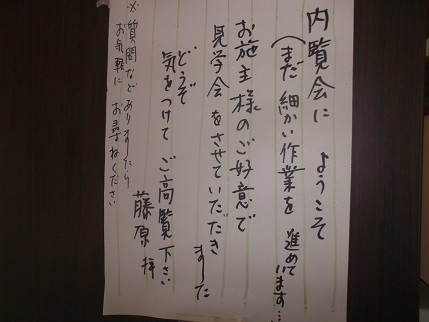 内覧会に ようこそ
(まだ 細かい作業を 進めています…
お施主様のご好意で
見学会をさせていただきました
どうぞ
気をつけて ご高覧下さい
藤原 拝
※質問などありましたら
お気軽に お尋ねください